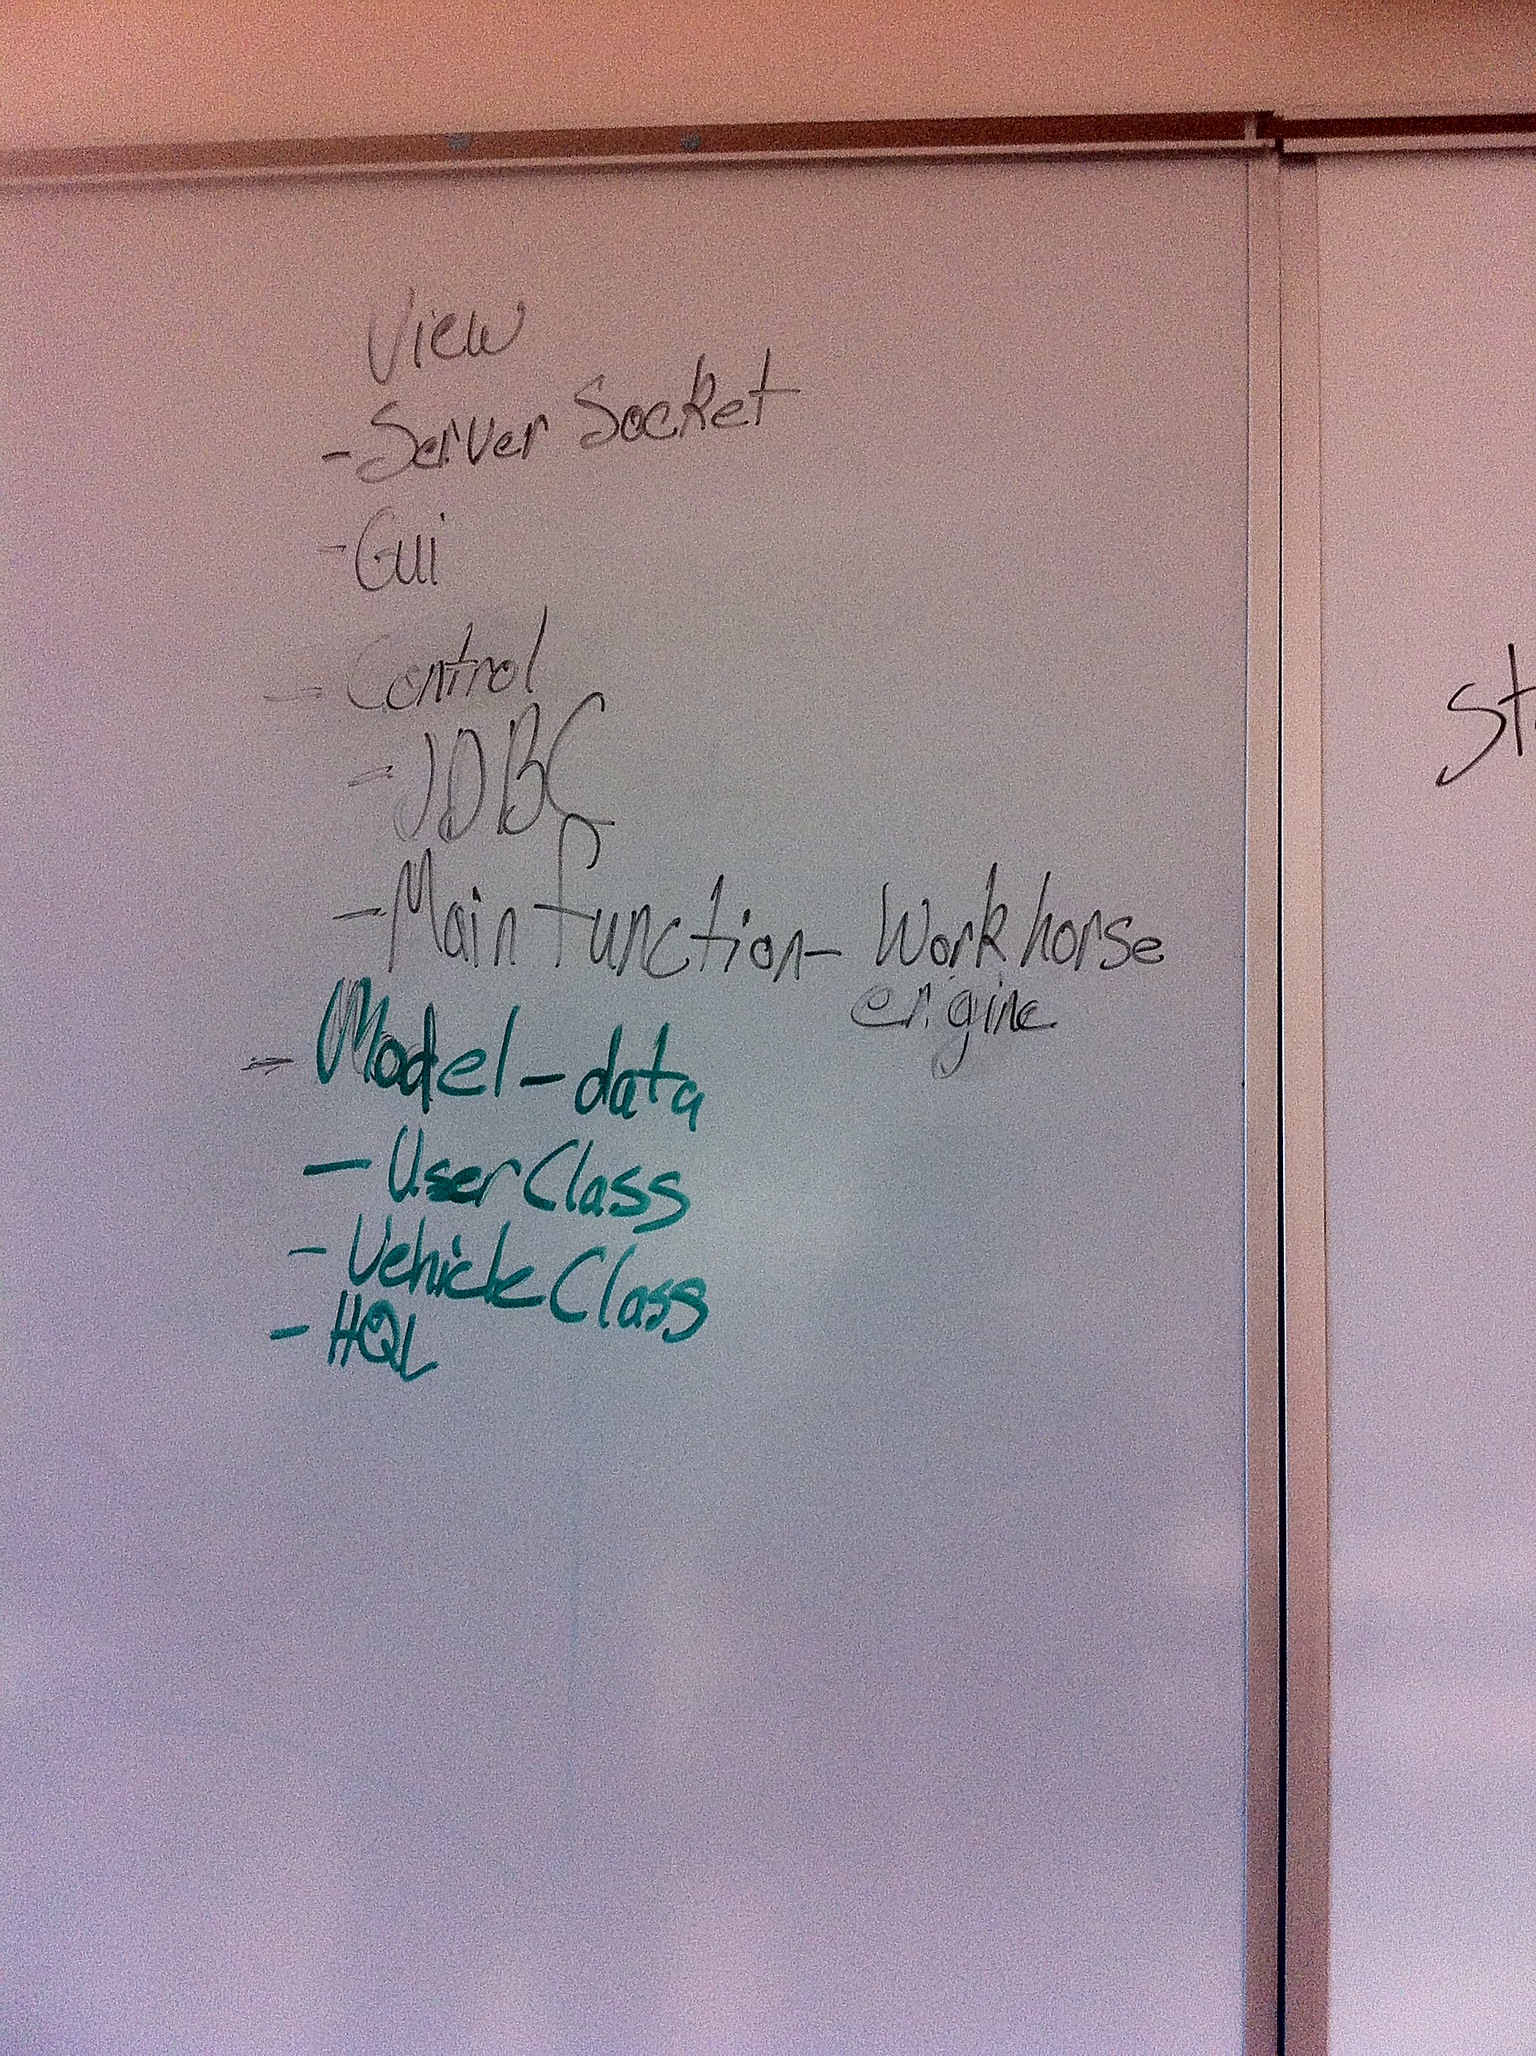 View
- Server Socket
- Gui
- Control
- JDBC
- Main function - Workhorse
engine
- Model - data
- User Class
- Vehicle Class
- HQL
St